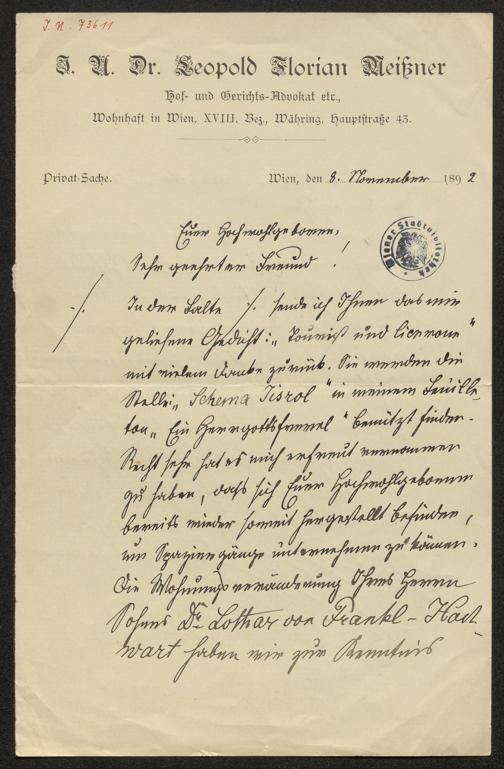 J. N. 73611
J. U. Dr. Leopold Florian Meißner
Hof- und Gerichts-Advokat etc.,
Wohnhaft in Wien, XVIII. Bez., Währing, Hauptstraße 43.
Privat-Sache.
Wien, den 8. November 1892
Wiener Stadtbibliothek
Euer Hochwohlgeboren,
Sehr geehrter Freund!
·/.
In der Falte ·/. sende ich Ihnen das mir
geliehene Gedicht: „Tourist und Cicerone“
mit vielem Danke zurück. Sie werden die
Stelle: „Schema Jisrol“ in meinem Feuille-
ton „Ein Herrgottsfrevel“ benützt finden.
Recht sehr hat es mich erfreut vernommen
zu haben, daß sich Euer Hochwohlgeboren
bereits wieder soweit hergestellt befinden,
um Spaziergänge unternehmen zu können.
Die Wohnungsveränderung Ihres Herrn
Sohnes Dr Lothar von Frankl-Hoch-
wart haben wir zur Kenntnis